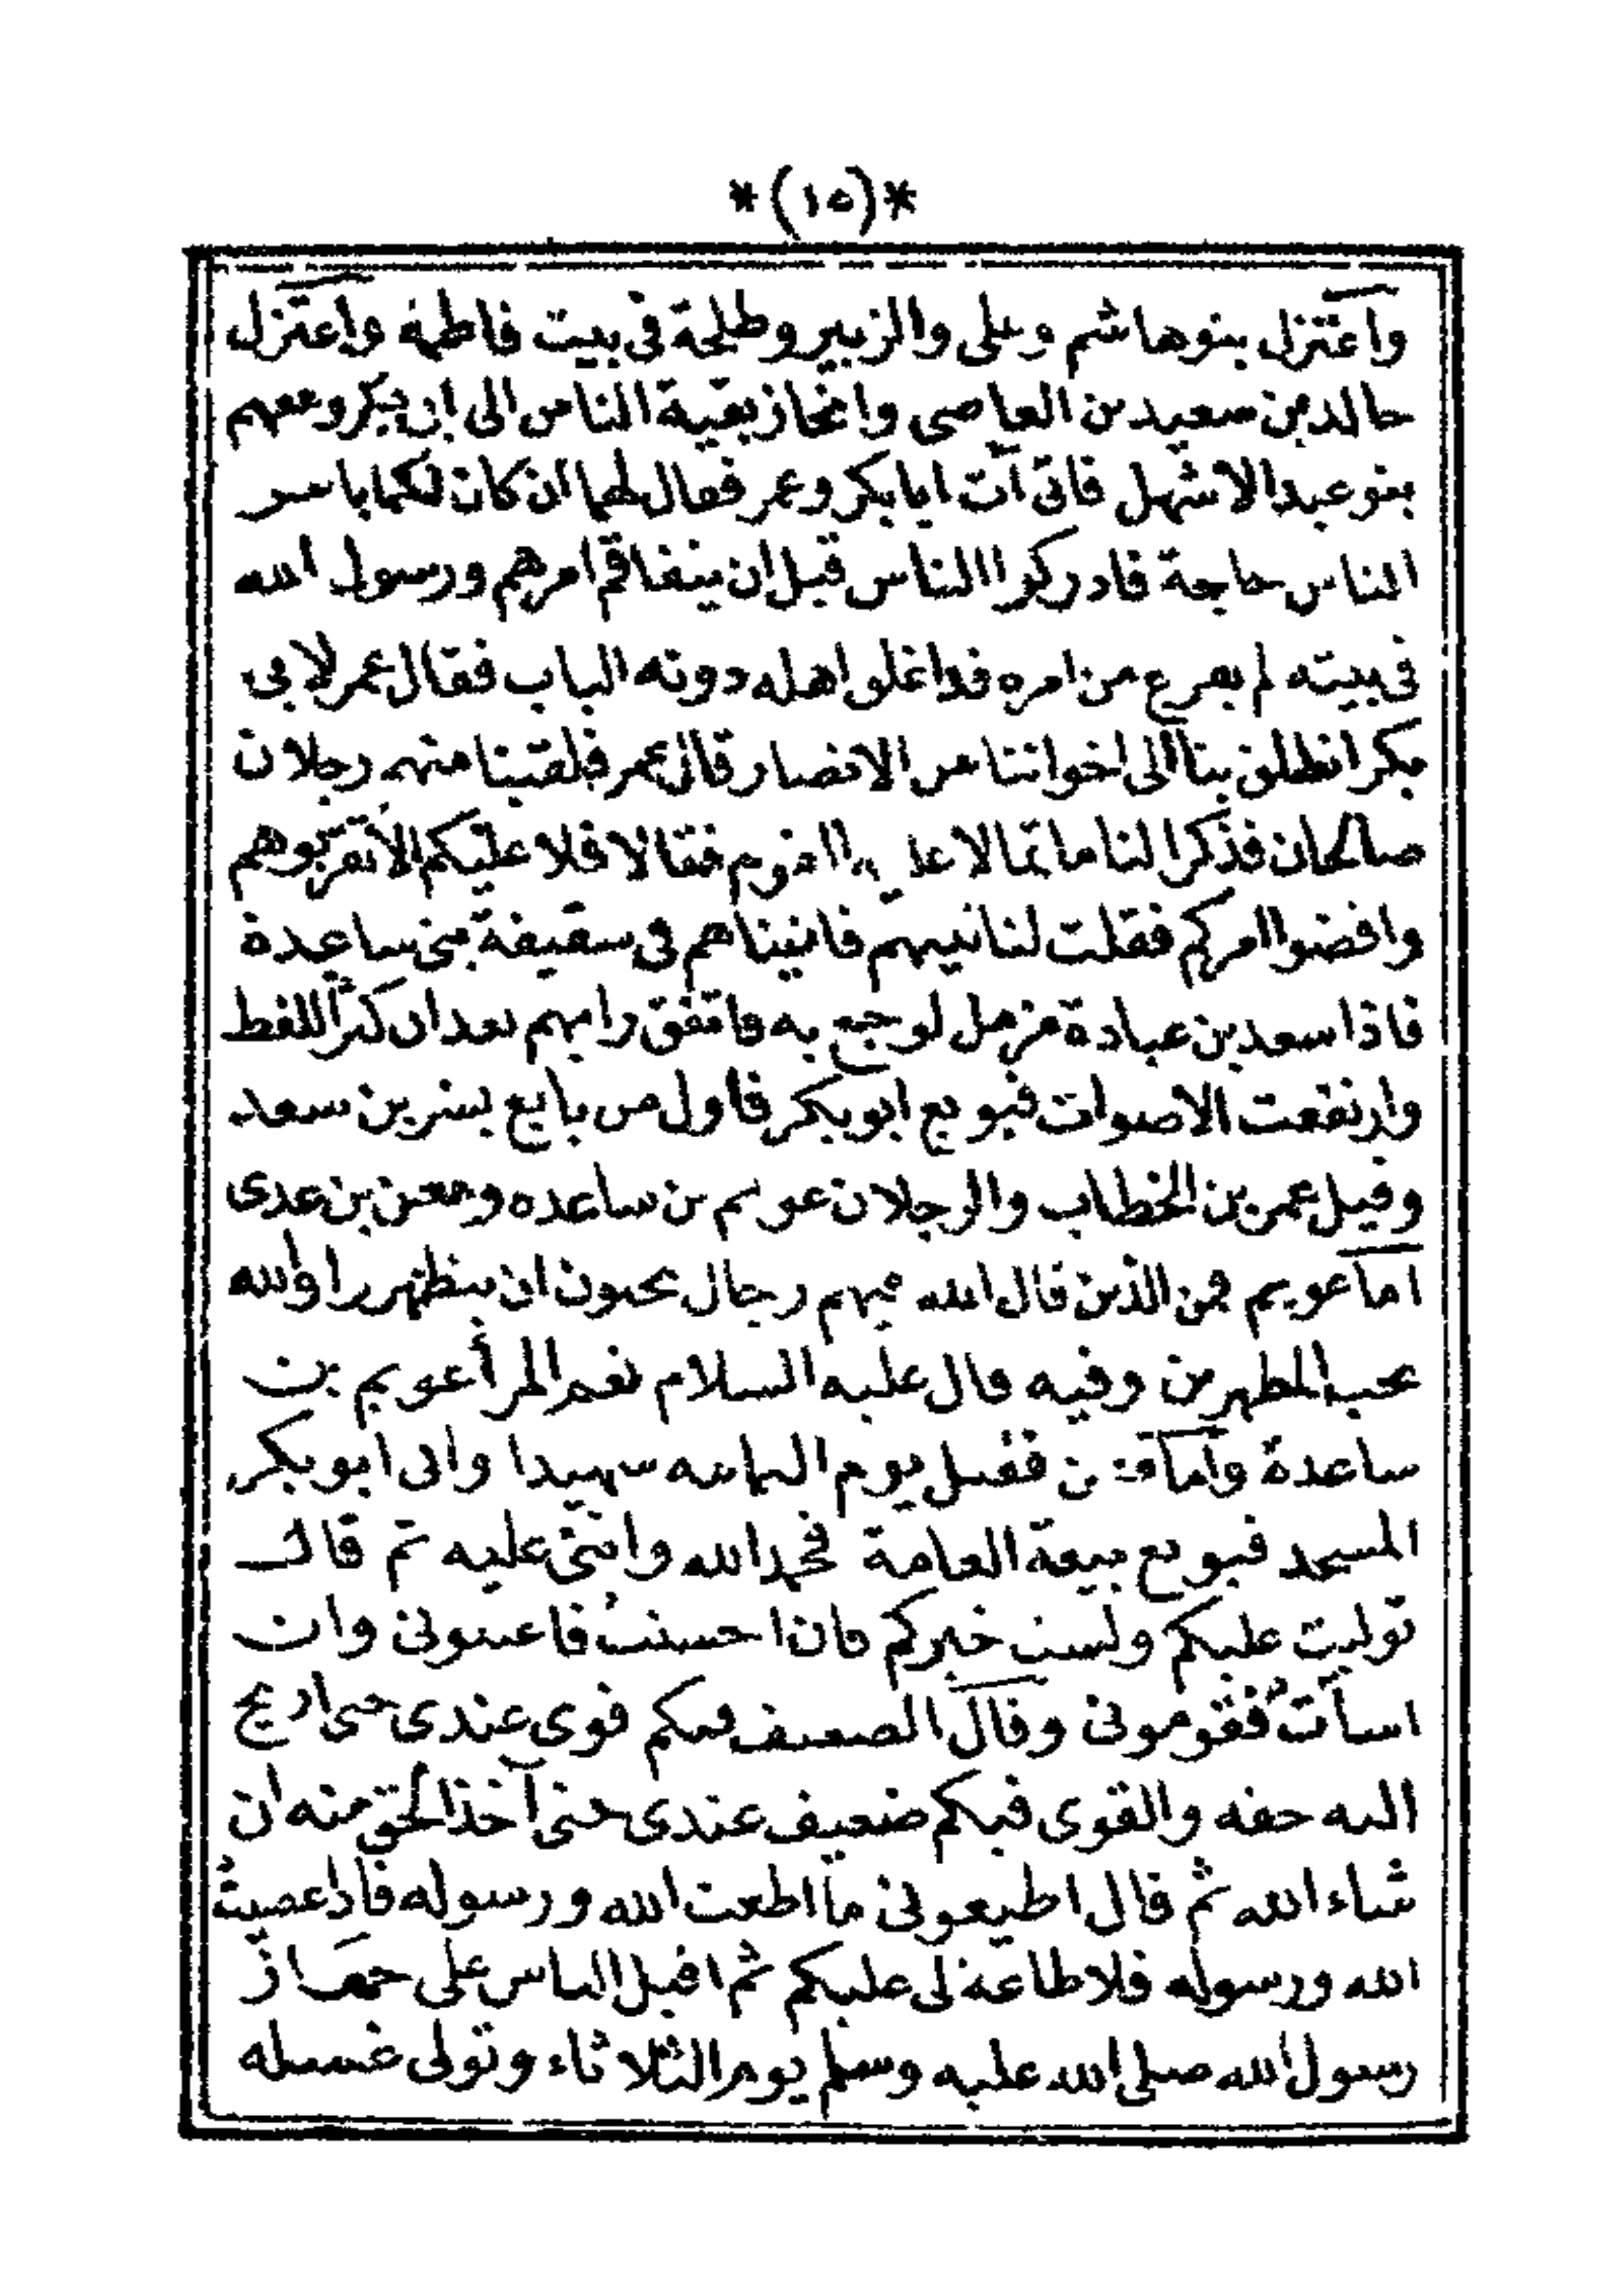 *(١٥)*
واعتزل بنو هاشم وعلى والزبير وطلحة فى بيت فاطمة واعتزل
خالد بن سعيد بن العاصى وانحاز بقية الناس الى ابى بكر ومعهم
بنو عبد الاشهل فاتى آت ابا بكر وعمر فقال لهما ان كان لكما بامر
الناس حاجة فادركوا الناس قبل ان يتفاقم امرهم ورسول الله
فى بيته لم يفرغ من امره قد اغلق اهله دونه الباب فقال عمر لابى
بكر انطلق بنا الى اخواننا من الانصار قال عمر فلقينا منهم رجلان
صالحان فذكرا لنا ما تمالا عليه القوم فقالا فلا عليكم الا تقربوهم
وافضوا امركم فقلت لنأتينهم فاتيناهم فى سقيفة بنى ساعدة
فاذا سعد بن عبادة مزمل لوجع به فاتفق رايهم بعد ان كثر اللغط
وارتفعت الاصوات فبويع ابو بكر فاول من بايع بشر بن سعد
وقيل عمر بن الخطاب والرجلان عويم بن ساعده ومعن بن عدى
اما عويم فمن الذين قال الله فيهم رجال يحبون ان يتطهروا والله
يحب المطهرين وفيه قال عليه السلام نعم المرأ عويم بن
ساعدة وأما معن فقتل يوم اليمامه شهيدا واتى ابو بكر
المسجد فبويع بيعة العامة فحمد الله واثنى عليه ثم قال
توليت عليكم ولست خيركم فان احسنتُ فاعينونى وان
اسأتُ فقومونى وقال الضعيف فيكم قوى عندى حتى اريح
اليه حقه والقوى فيكم ضعيف عندى حتى آخذ الحق منه ان
شاء الله ثم قال اطيعونى ما اطعت الله ورسوله فاذا عصيتُ
الله ورسوله فلا طاعة لى عليكم ثم اقبل الناس على جهَاز
رسول الله صلى الله عليه وسلم يوم الثلاثاء وتولى غسله